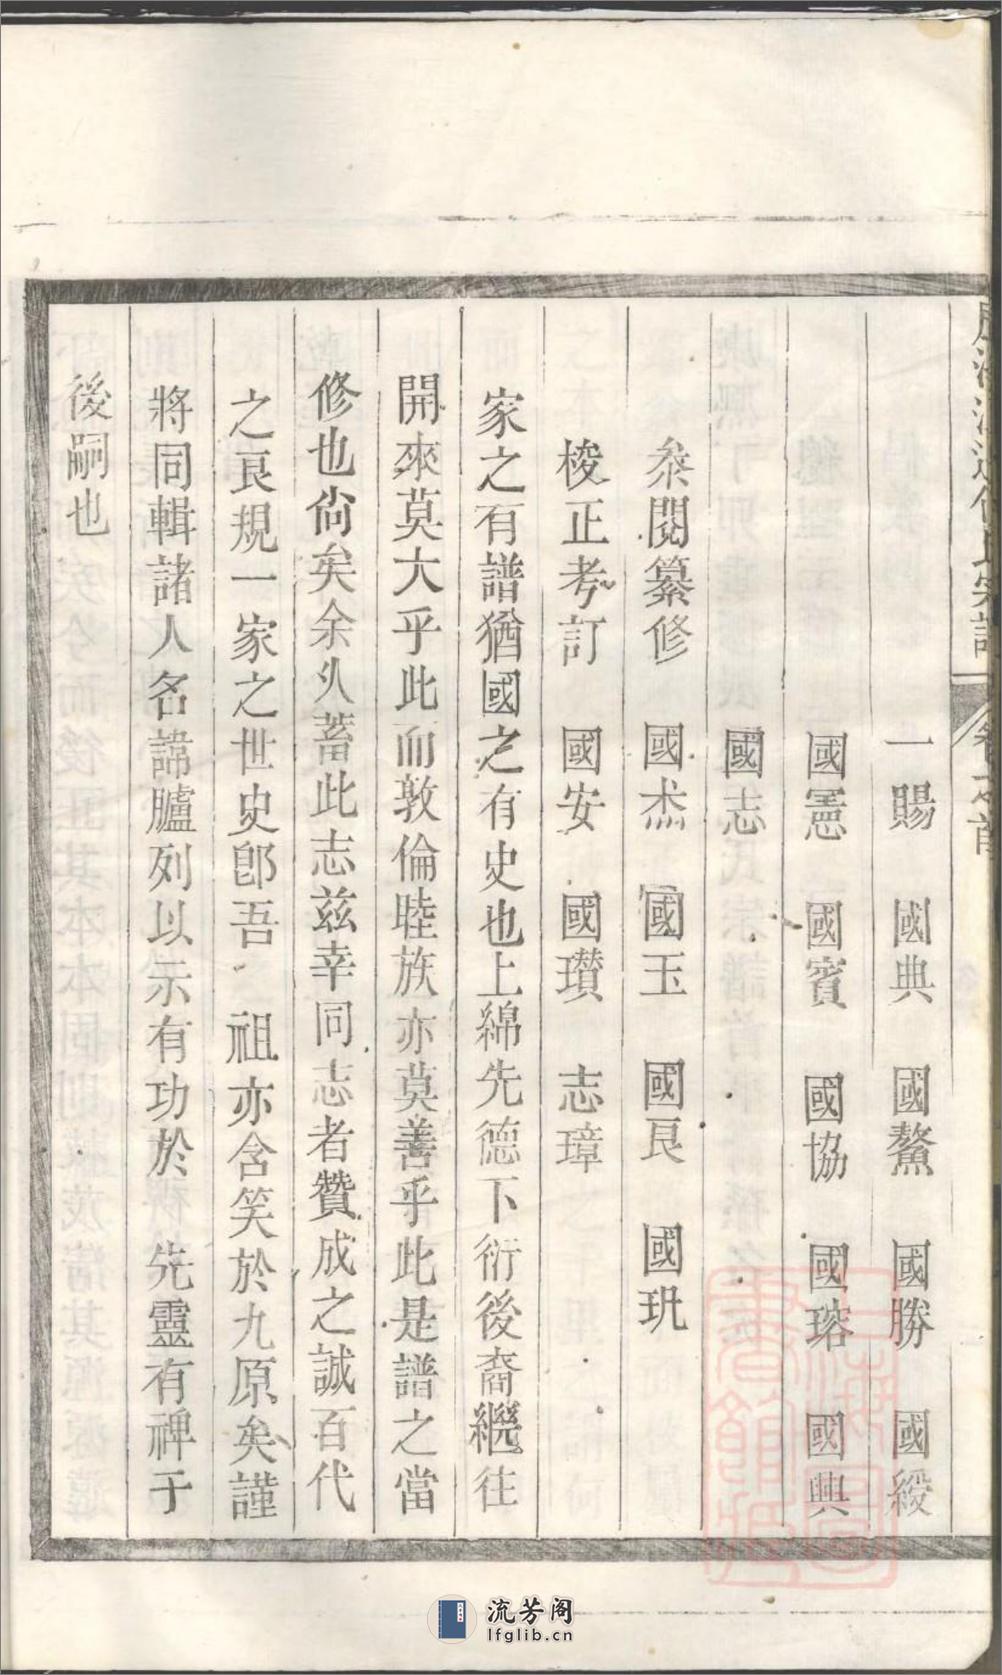 一賜 國典 國鰲 國勝 國綬
國憲 國賓 國協 國瑢 國興
國志
叅閱纂修 國杰 國玉 國艮 國玧
梭正考訂 國安 國瓚 志璋
家之有譜猶國之有史也上綿先德下衍後裔繼往
開來莫大乎此而敦倫睦族亦莫善乎此是譜之當
修也尙矣余乆蓄此志茲幸同志者贊成之誠百代
之良規一家之世史卽吾 祖亦含笑於九原矣謹
將同輯諸人名諱臚列以示有功於 先靈有裨于
後嗣也
流芳阁
lfglib.cn